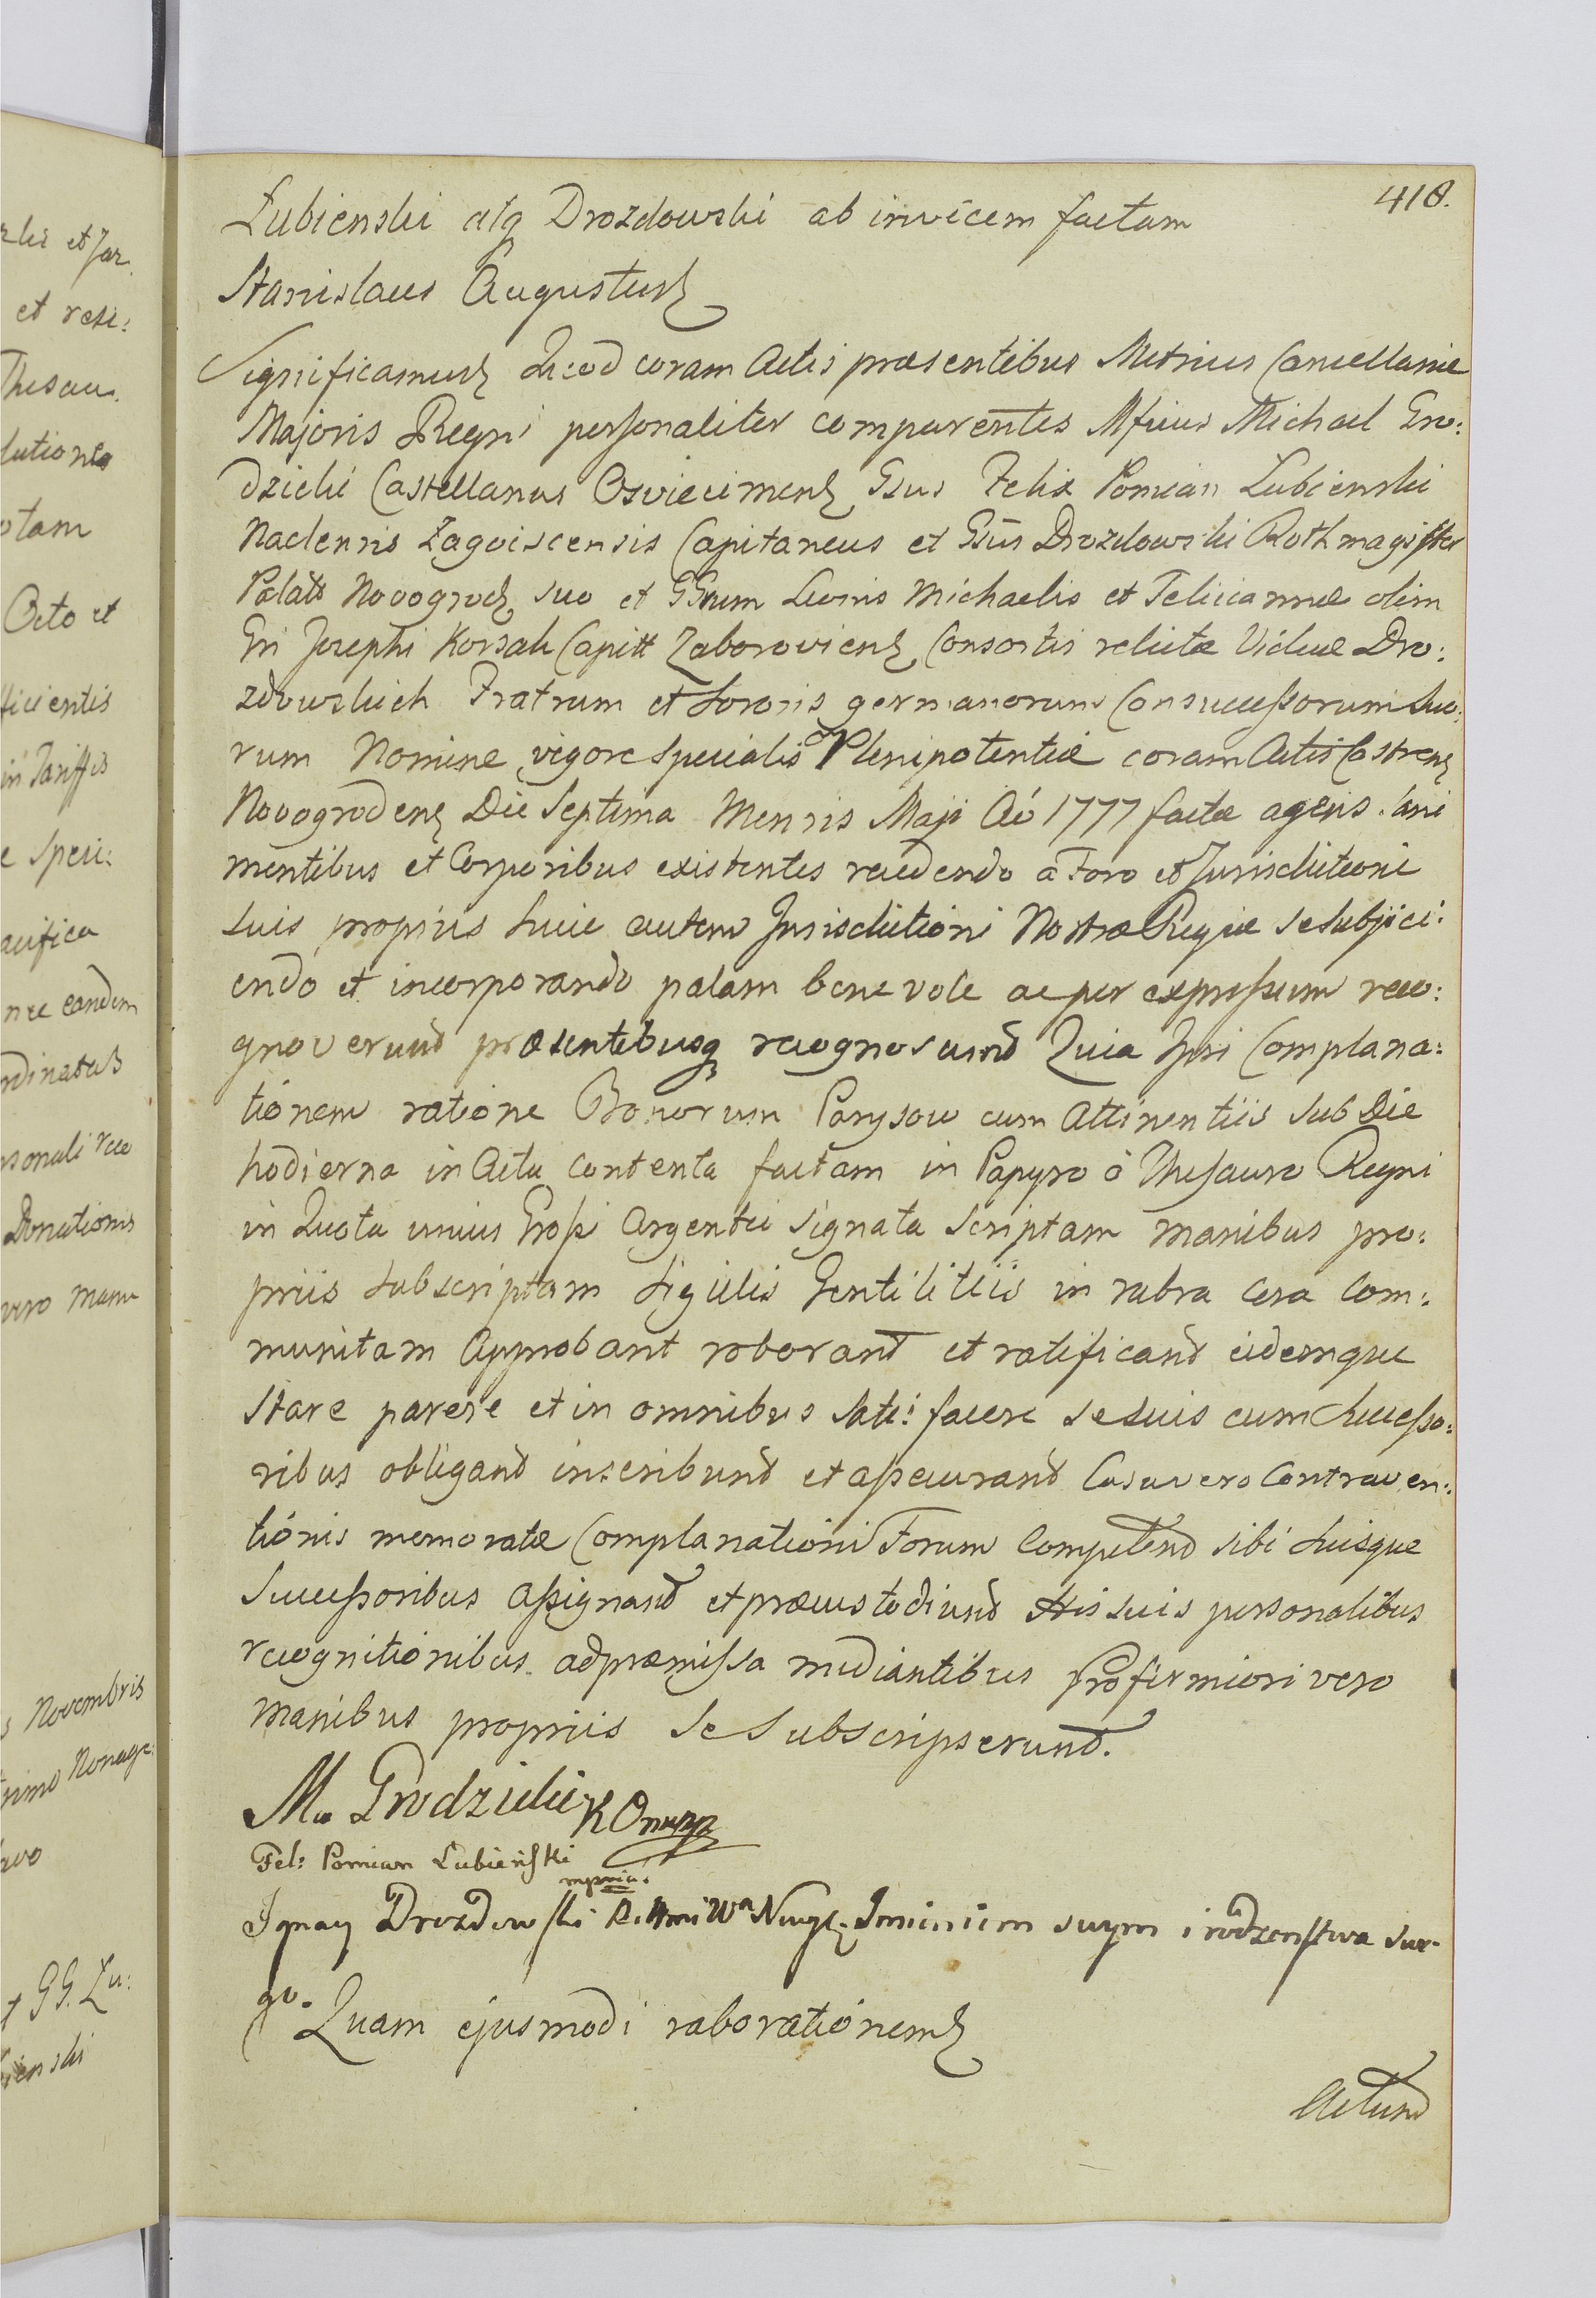 418.
Łubienski atq Drozdowski ab invicem factam
Stanislaus Augustus
Significamus Quod coram Actis præsentibus Metrices Cancellariæ
Majoris Regni personaliter comparentes Mficus Michael Gro:
dzicki Castellanus Osviecimens Gsus Felix Pomian Łubienski
Naclensis Zagoiscensis Capitaneus et Gsus Drozdowski Rothmagister
Palatś Novogrods suo et GGrum Leonis Michaelis et Felicianne olim
Gri Josephi Korsak Capitt Zaboroviens Consortis relictæ Viduæ Dro:
zdowskich Fratrum et Sororis germanorum Consuccessorum Suo:
rum Nomine vigore specialis Plenipotentiæ coram Actis Castrens
Novogrodens Die Septima Mensis Maji Aó 1777 factæ agens. Sani
mentibus et Corporibus existentes recedendo a Foro et Jurisdictione
suis propriis huic autem Jurisdictioni Nostræ Regiæ se subjici:
endo et incorporando palam benevole ac per expressum reco:
gnoverunt præsentibusq recognoscunt Quia Ipsi Complana:
tionem ratione Bonorum Parysow cum Attinentiis sub Die
hodierna in Acta contenta factam in Papyro ó Thesauro Regni
in Quota unius Grossi Argentei signata scriptam manibus pro:
priis subscriptam Sigillis Gentilitiis in rubra cera com:
munitam Approbant roborant et ratificant eidemque
stare parere et in omnibus satis: facere se suis cum Successo:
ribus obligant inscribunt et assecurant Casu vero Contraven:
tiónis memoratæ Complanationi Forum Competens sibi Suisque
Successoribus Assignant et præcustodiunt His suis personalibus
recognitionibus ad præmissa mediantibus Pro firmiori vero
manibus propriis se subscripserunt.
M. Grodzicki K O mpp
Fel: Pomian Łubieński
mpria.
Ignacy Drozdowski Rottmi Wa Nwgs. Imieniem swym i rodzenstwa swe-
go.
Quam ejusmodi roborationem
Actum